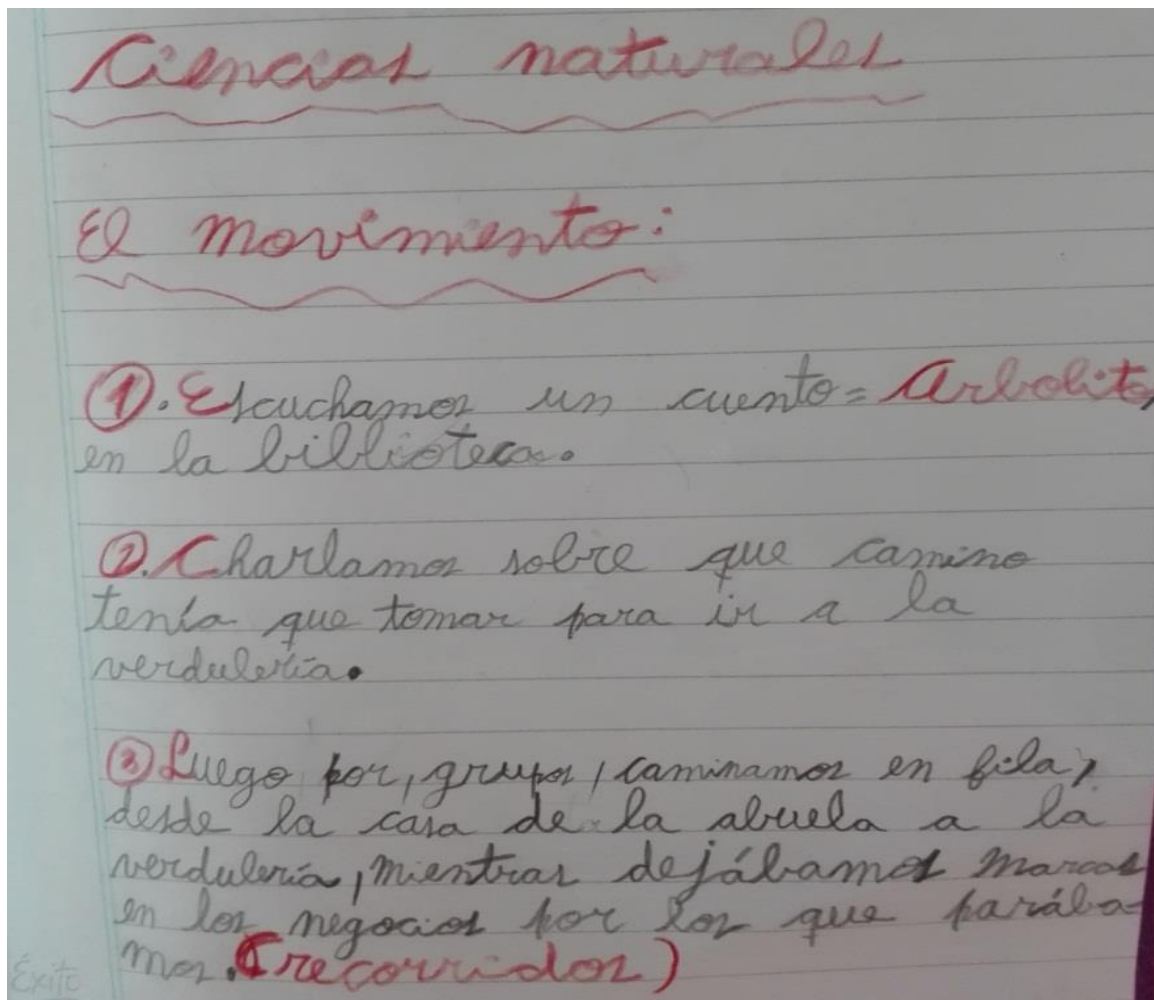 Ciencias naturales
El movimiento:
①. Escuchamos un cuento= Arbolito,
en la biblioteca.
②. Charlamos sobre que camino
tenía que tomar para ir a la
verdulería.
③ Luego por, grupos, caminamos en fila,
desde la casa de la abuela a la
verdulería, mientras dejábamos marcas
en los negocios por los que parába-
mos. (recorridos)
Éxito